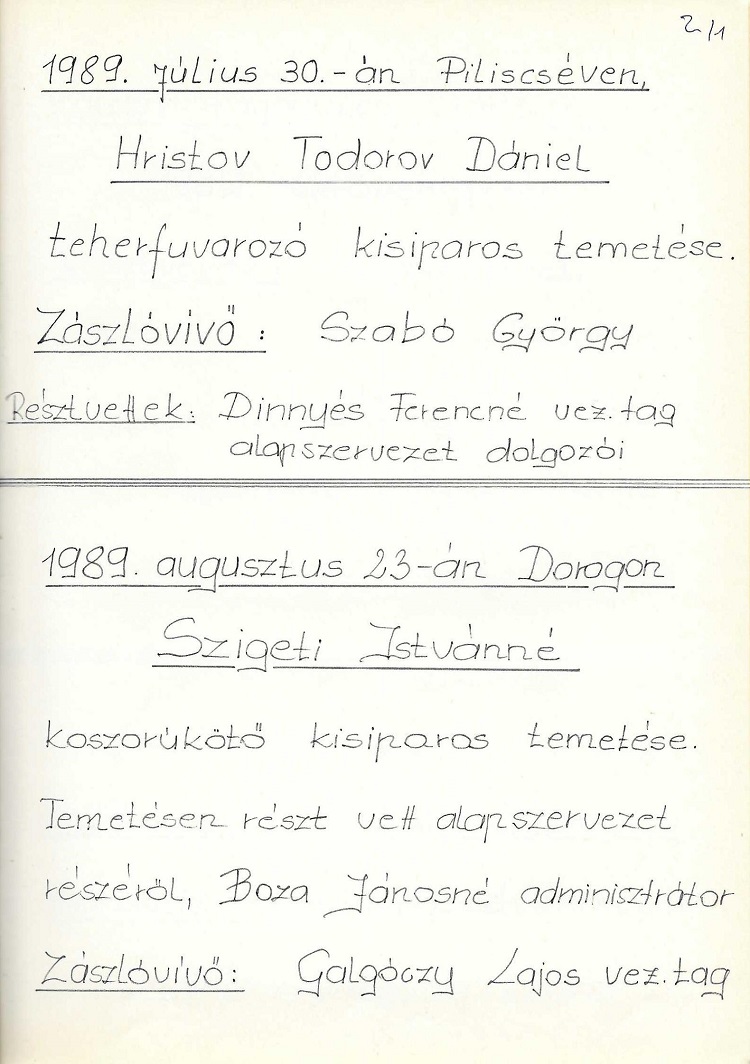 2/1
1989. július 30.-án Piliscséven,
Hristov Todorov Dániel
teherfuvarozó kisiparos temetése.
Zászlóvivő: Szabó György
Résztvettek: Dinnyés Ferencné vez.tag
alapszervezet dolgozói
1989. augusztus 23-án Dorogon
Szigeti Istvánné
koszorúkötő kisiparos temetése.
Temetésen részt vett alapszervezet
részéről, Boza Jánosné adminisztrátor
Zászlóvivő: Galgóczy Lajos vez.tag